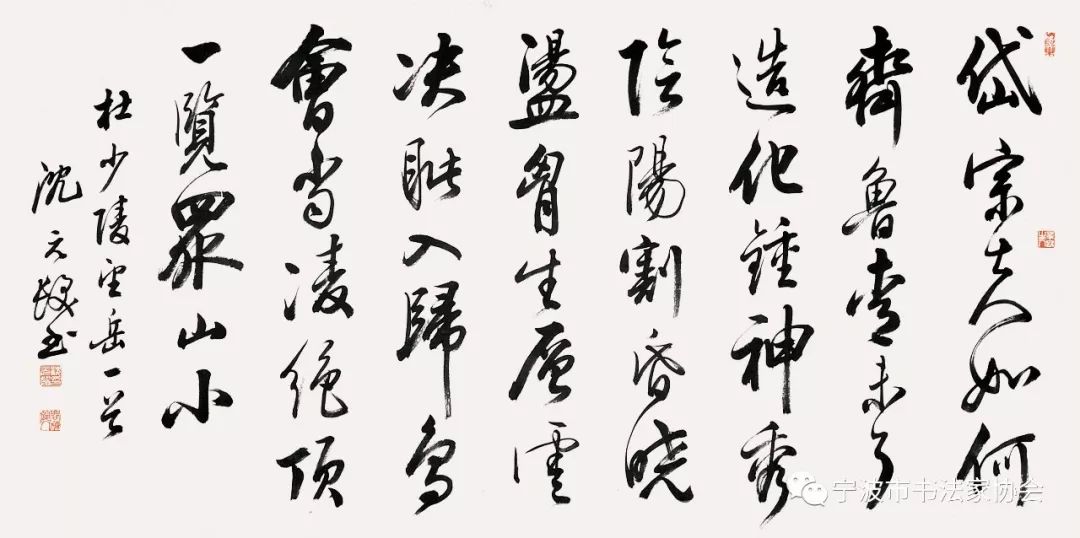 岱宗夫如何
齊魯青未了
造化鍾神秀
陰陽割昏曉
盪胷生層雲
决眦入歸鳥
會當凌絕頂
一覽眾山小
杜少陵望岳一首
沈元發書
宁波市书法家协会